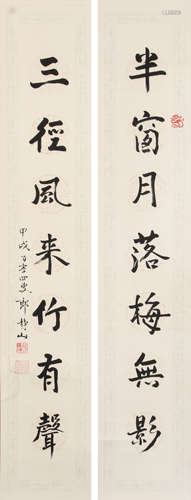 半窗月落梅無影
三徑風来竹有聲
甲戌百零四叟郎静山